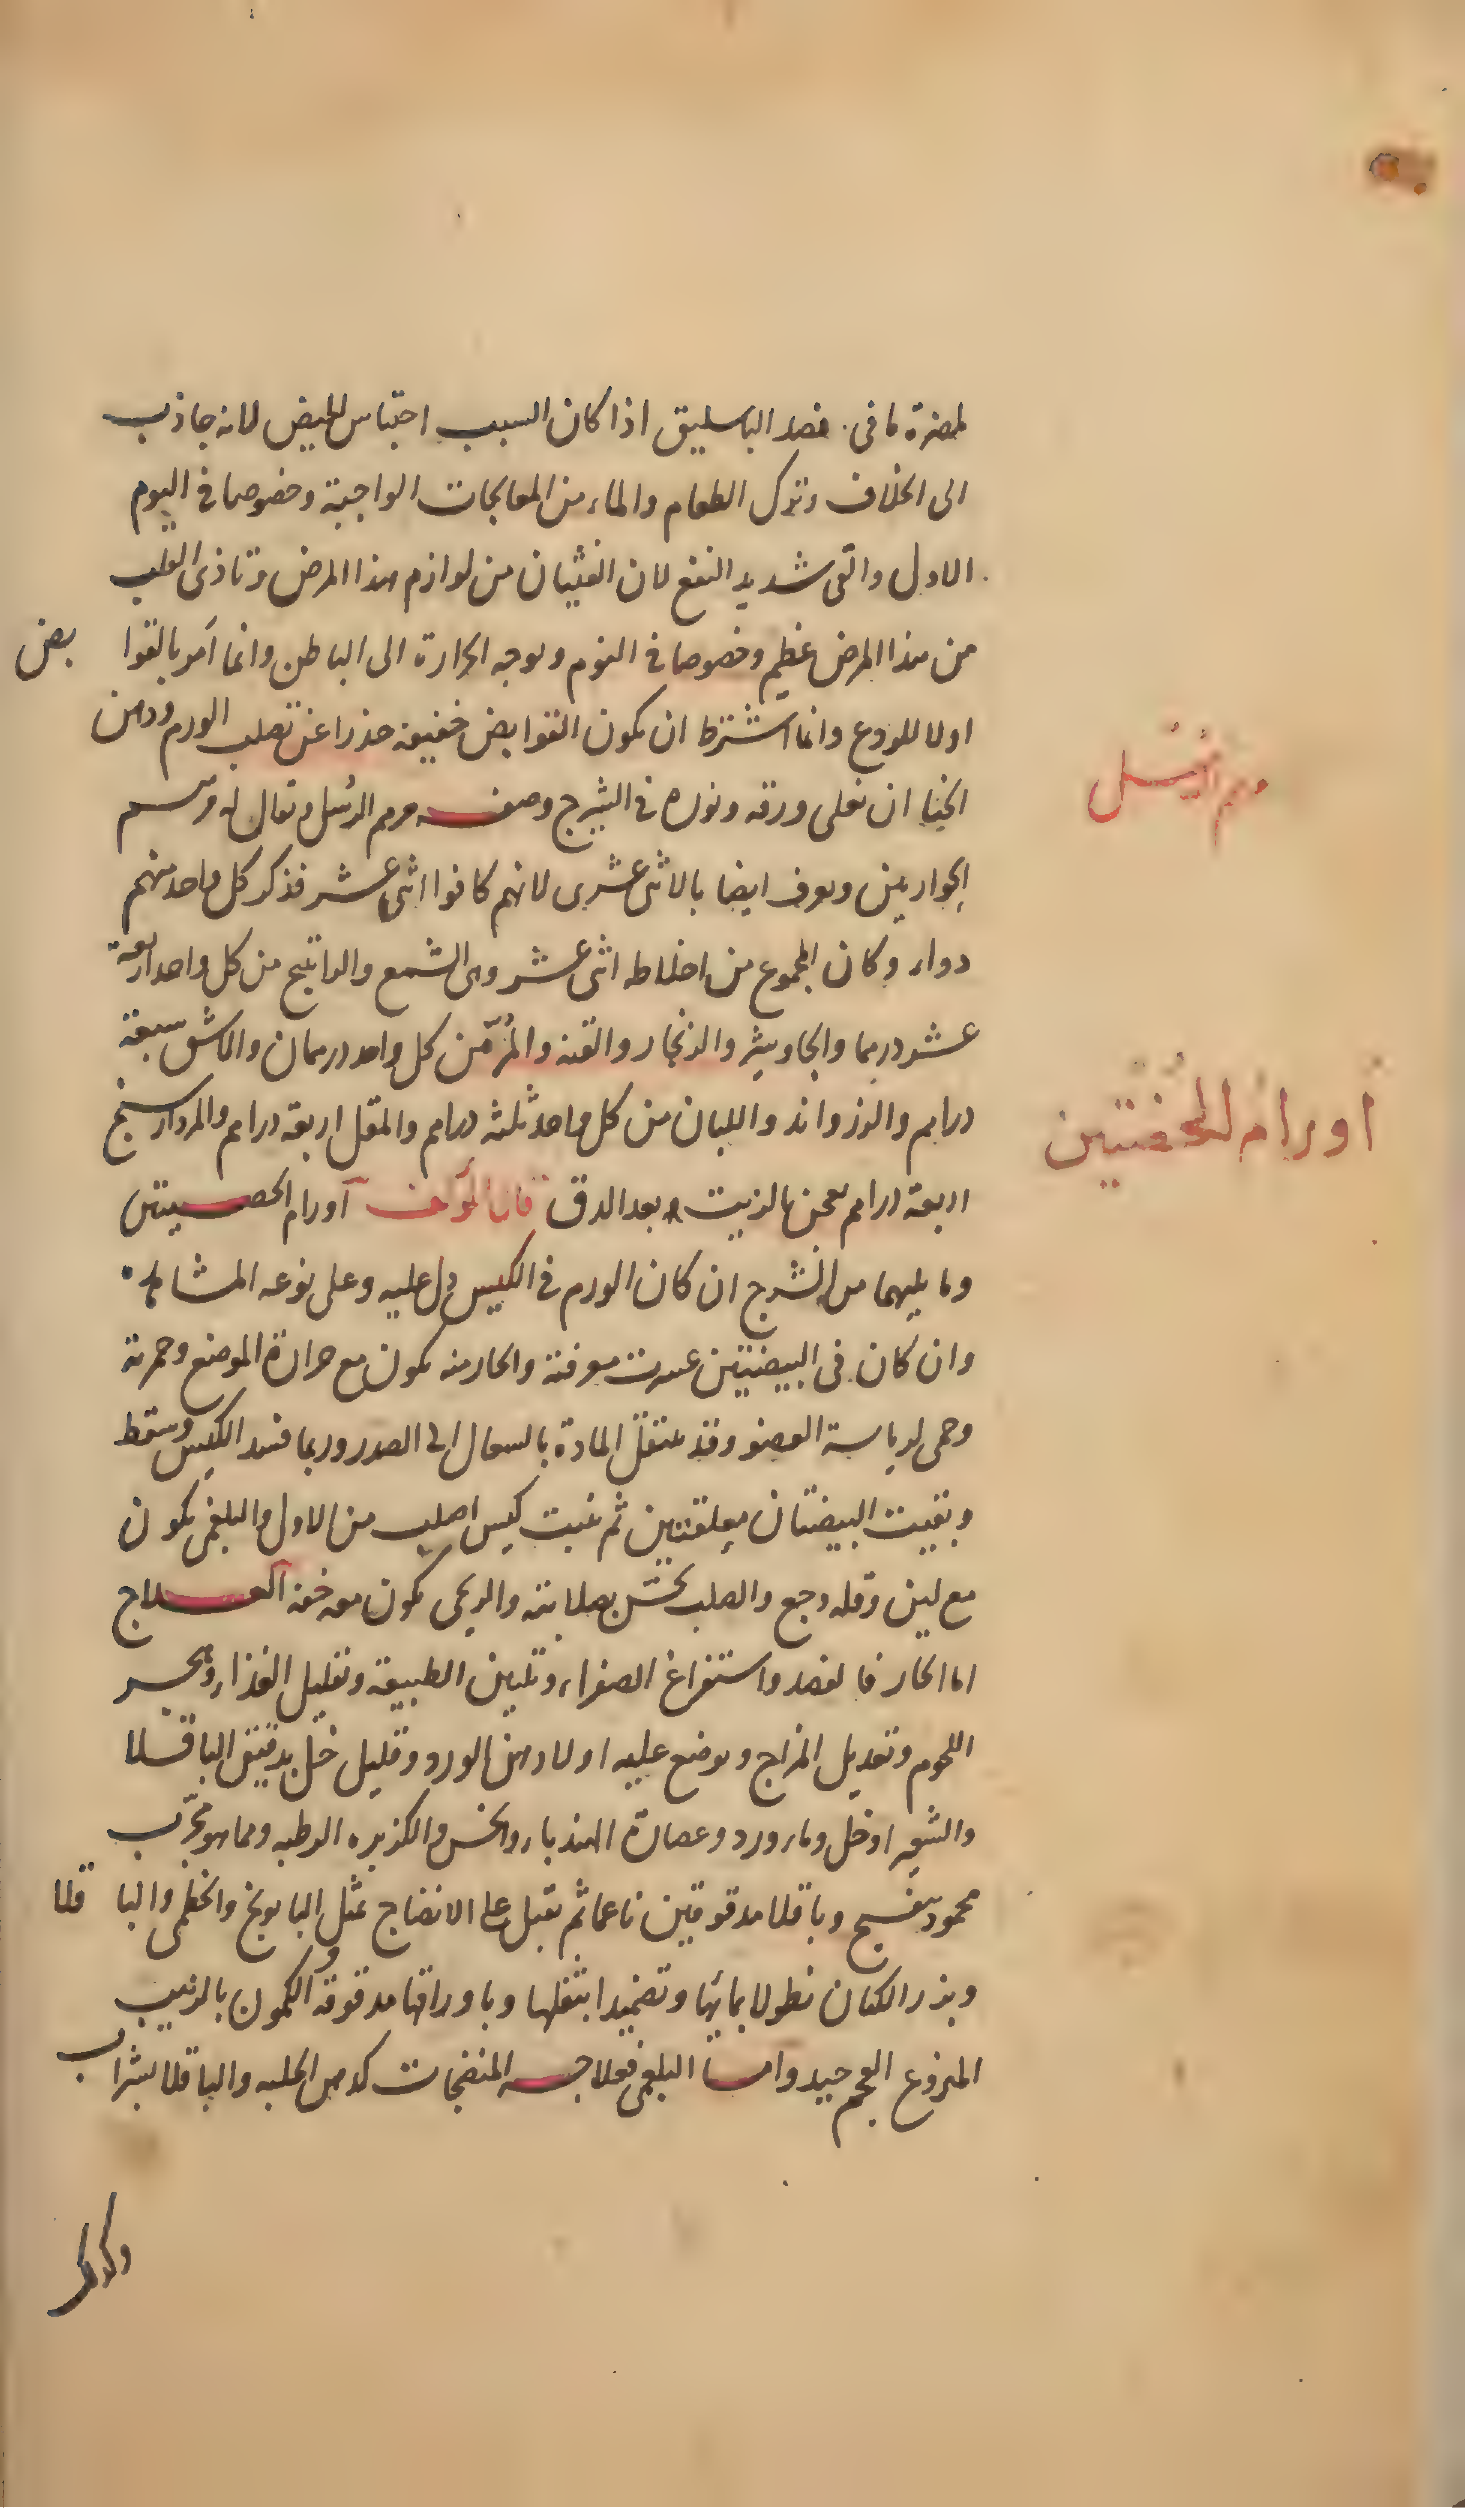 لمضرة ما فى فصد الباسليق اذا كان السبب احتباس الحيض لانه جاذب
الى الخلاف وترك الطعام والماء من المعالجات الواجبة وخصوصا فى اليوم
الاول والقى شديد النفع لان الغثيان من لوازم هذا المرض وتاذى القلب
من هذا المرض عظيم وخصوصا فى النوم وتوجه الحرارة الى الباطن وانما آمر بالقوا بض
اولا للردع وانما اشترط ان يكون القوابض خفيفة حذرا عن تصلب الورم ودهن
الحنا ان يغلى ورقه ونوره فى الشيرج وصفة مرهم الرُسُل ويقال له مرهم
مرهم الرُسُل
الحواريين ويعرف ايضا بالاثنى عشرى لانهم كانوا اثنى عشر فذكر كل واحد منهم
دواء وكان المجموع من اخلاطه اثنى عشر وهى الشمع والراتينج من كل واحد اربعة
عشر درهما والجاوشير والزنجار والقنه والمُرّ من كل واحد درهمان والاشق سبعة
دراهم والزرواند واللبان من كل واحد ثلثة دراهم والمقل اربعة دراهم والمرداسنج
اورام الخصيتين
اربعة دراهم يعجن بالزيت بعد الدق قال المؤلف اورام الخصيتين
وما يليهما من الشرج ان كان الورم فى الكيس دل عليه وعلى نوعه المشاهدة
وان كان فى البيضتين عسرت معرفته والحار منه يكون مع حرارة الموضع وحمرته
وحمى لرياسة العضو وقد ينتقل المادة بالسعال الى الصدر وربما فسد الكيس وسقط
وبقيت البيضتان معلقتين ثم ينبت كيس اصلب من الاول والبلغمى يكون
مع لين وقله وجع والصلب يحس بصلابته والريحى يكون معه خفه العلاج
اما الحار فالفصد واستفراغ الصفراء وتليين الطبيعة وتقليل الغذاء وهجر
اللحوم وتعديل المزاج ويوضع عليه اولا دهن الورد وقليل خل بدقيق الباقلا
والشعير اوخل وماء ورد وعصارة الهندباء والخس والكزبره الرطبه ومما هو مجرّب
محمود بنفسج وباقلا مدقوقين ناعما ثم يقبل على الانضاج بمثل البابونج والخطمى والبا قلا
وبزر الكتان نطولا بمائها وتضميدا بثفلها وباوراقها مدقوقه والكمون بالزبيب
المنزوع العجم جيد واما البلغمى فعلاجه المنضجات كدهن الحلبه والباقلا بشراب
وكذلك